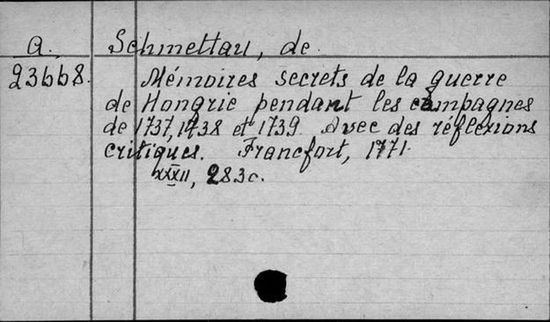 A. Schmettau, de
23668. Mémoires secrets de la guerre
de Hongrie pendant les campagnes
de 1737, 1738 et 1739. Avec des réflexions
critiques. Francfort, 1771.
XXXII, 283c.